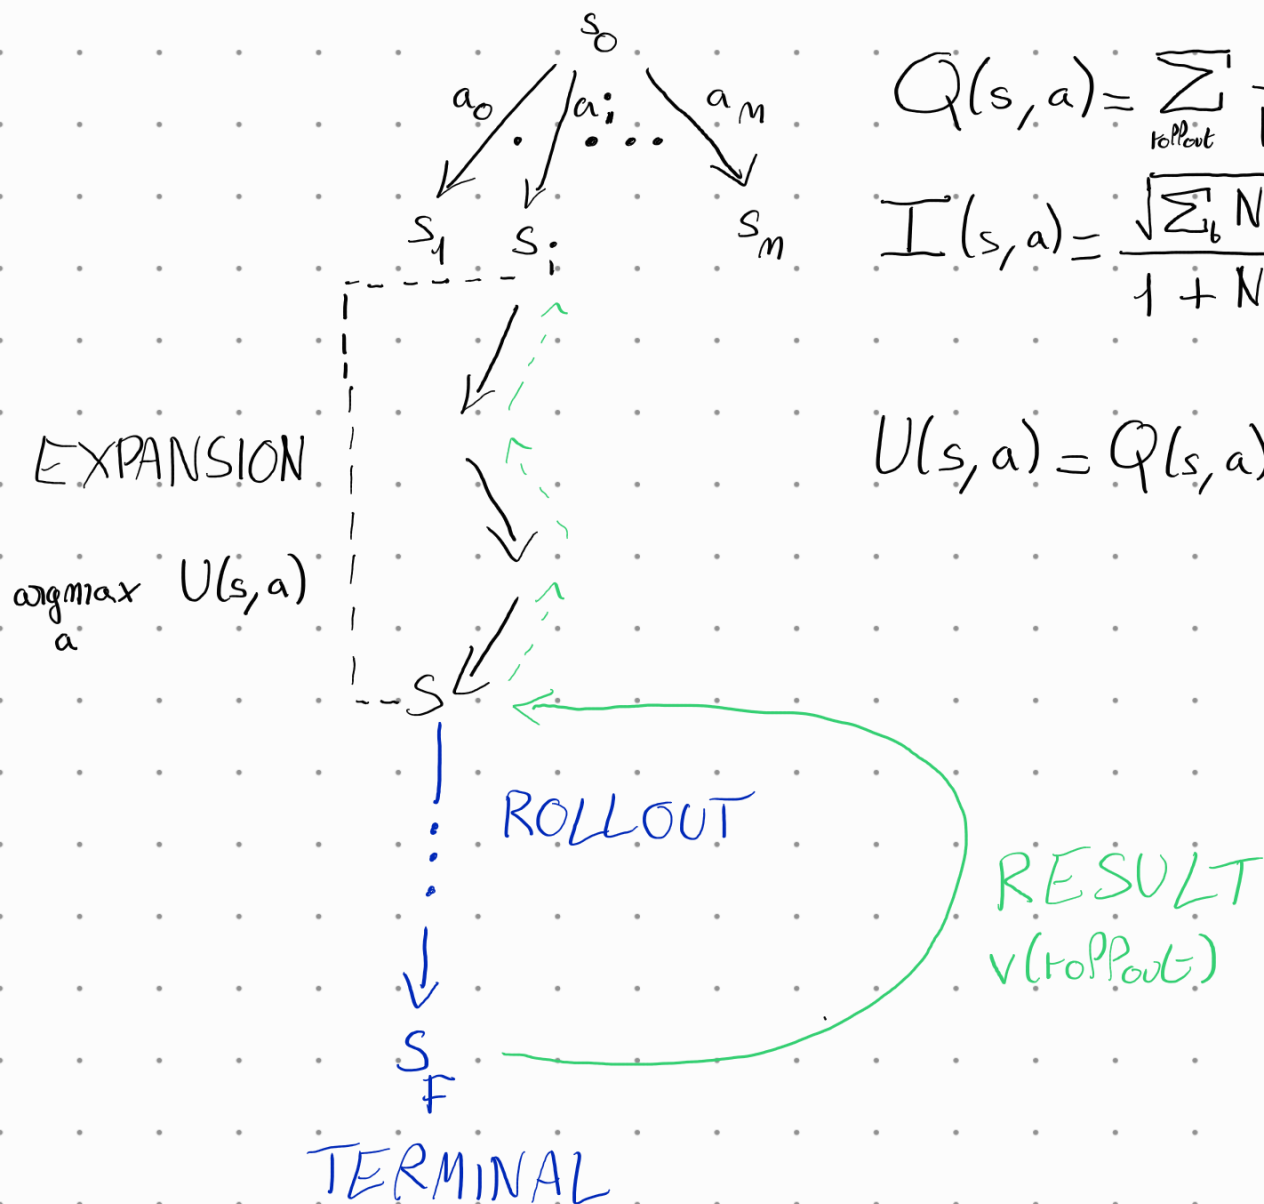 s₀
a₀ aᵢ aₘ
s₁ sᵢ sₘ
Q(s,a) = Σ
rollout
I(s,a) = √Σ_b N
1 + N
U(s,a) = Q(s,a)
EXPANSION
argmax U(s,a)
a
S
ROLLOUT
RESULT
v(rollout)
S_F
TERMINAL